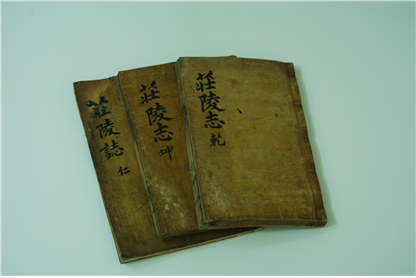 莊陵誌 仁
莊陵志 坤
莊陵志 乾